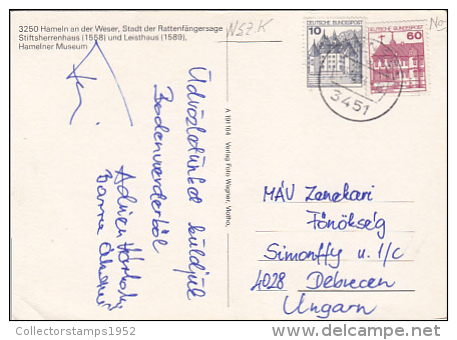 3250 Hameln an der Weser, Stadt der Rattenfängersage
Stiftsherrenhaus (1558) und Leisthaus (1589),
Hamelner Museum
N52K
No
DEUTSCHE BUNDESPOST
10
DEUTSCHE BUNDESPOST
60
3451
Üdvözletünket küldjük
Bodenwerderből
Adrien
A 191 164 Verlag Foto Wagner, Vlotho
MÁV Zenekari
Főnökség
Simonffy u. 1/c
4028 Debrecen
Ungarn
Collectorstamps1952
http://www.delcampe.net